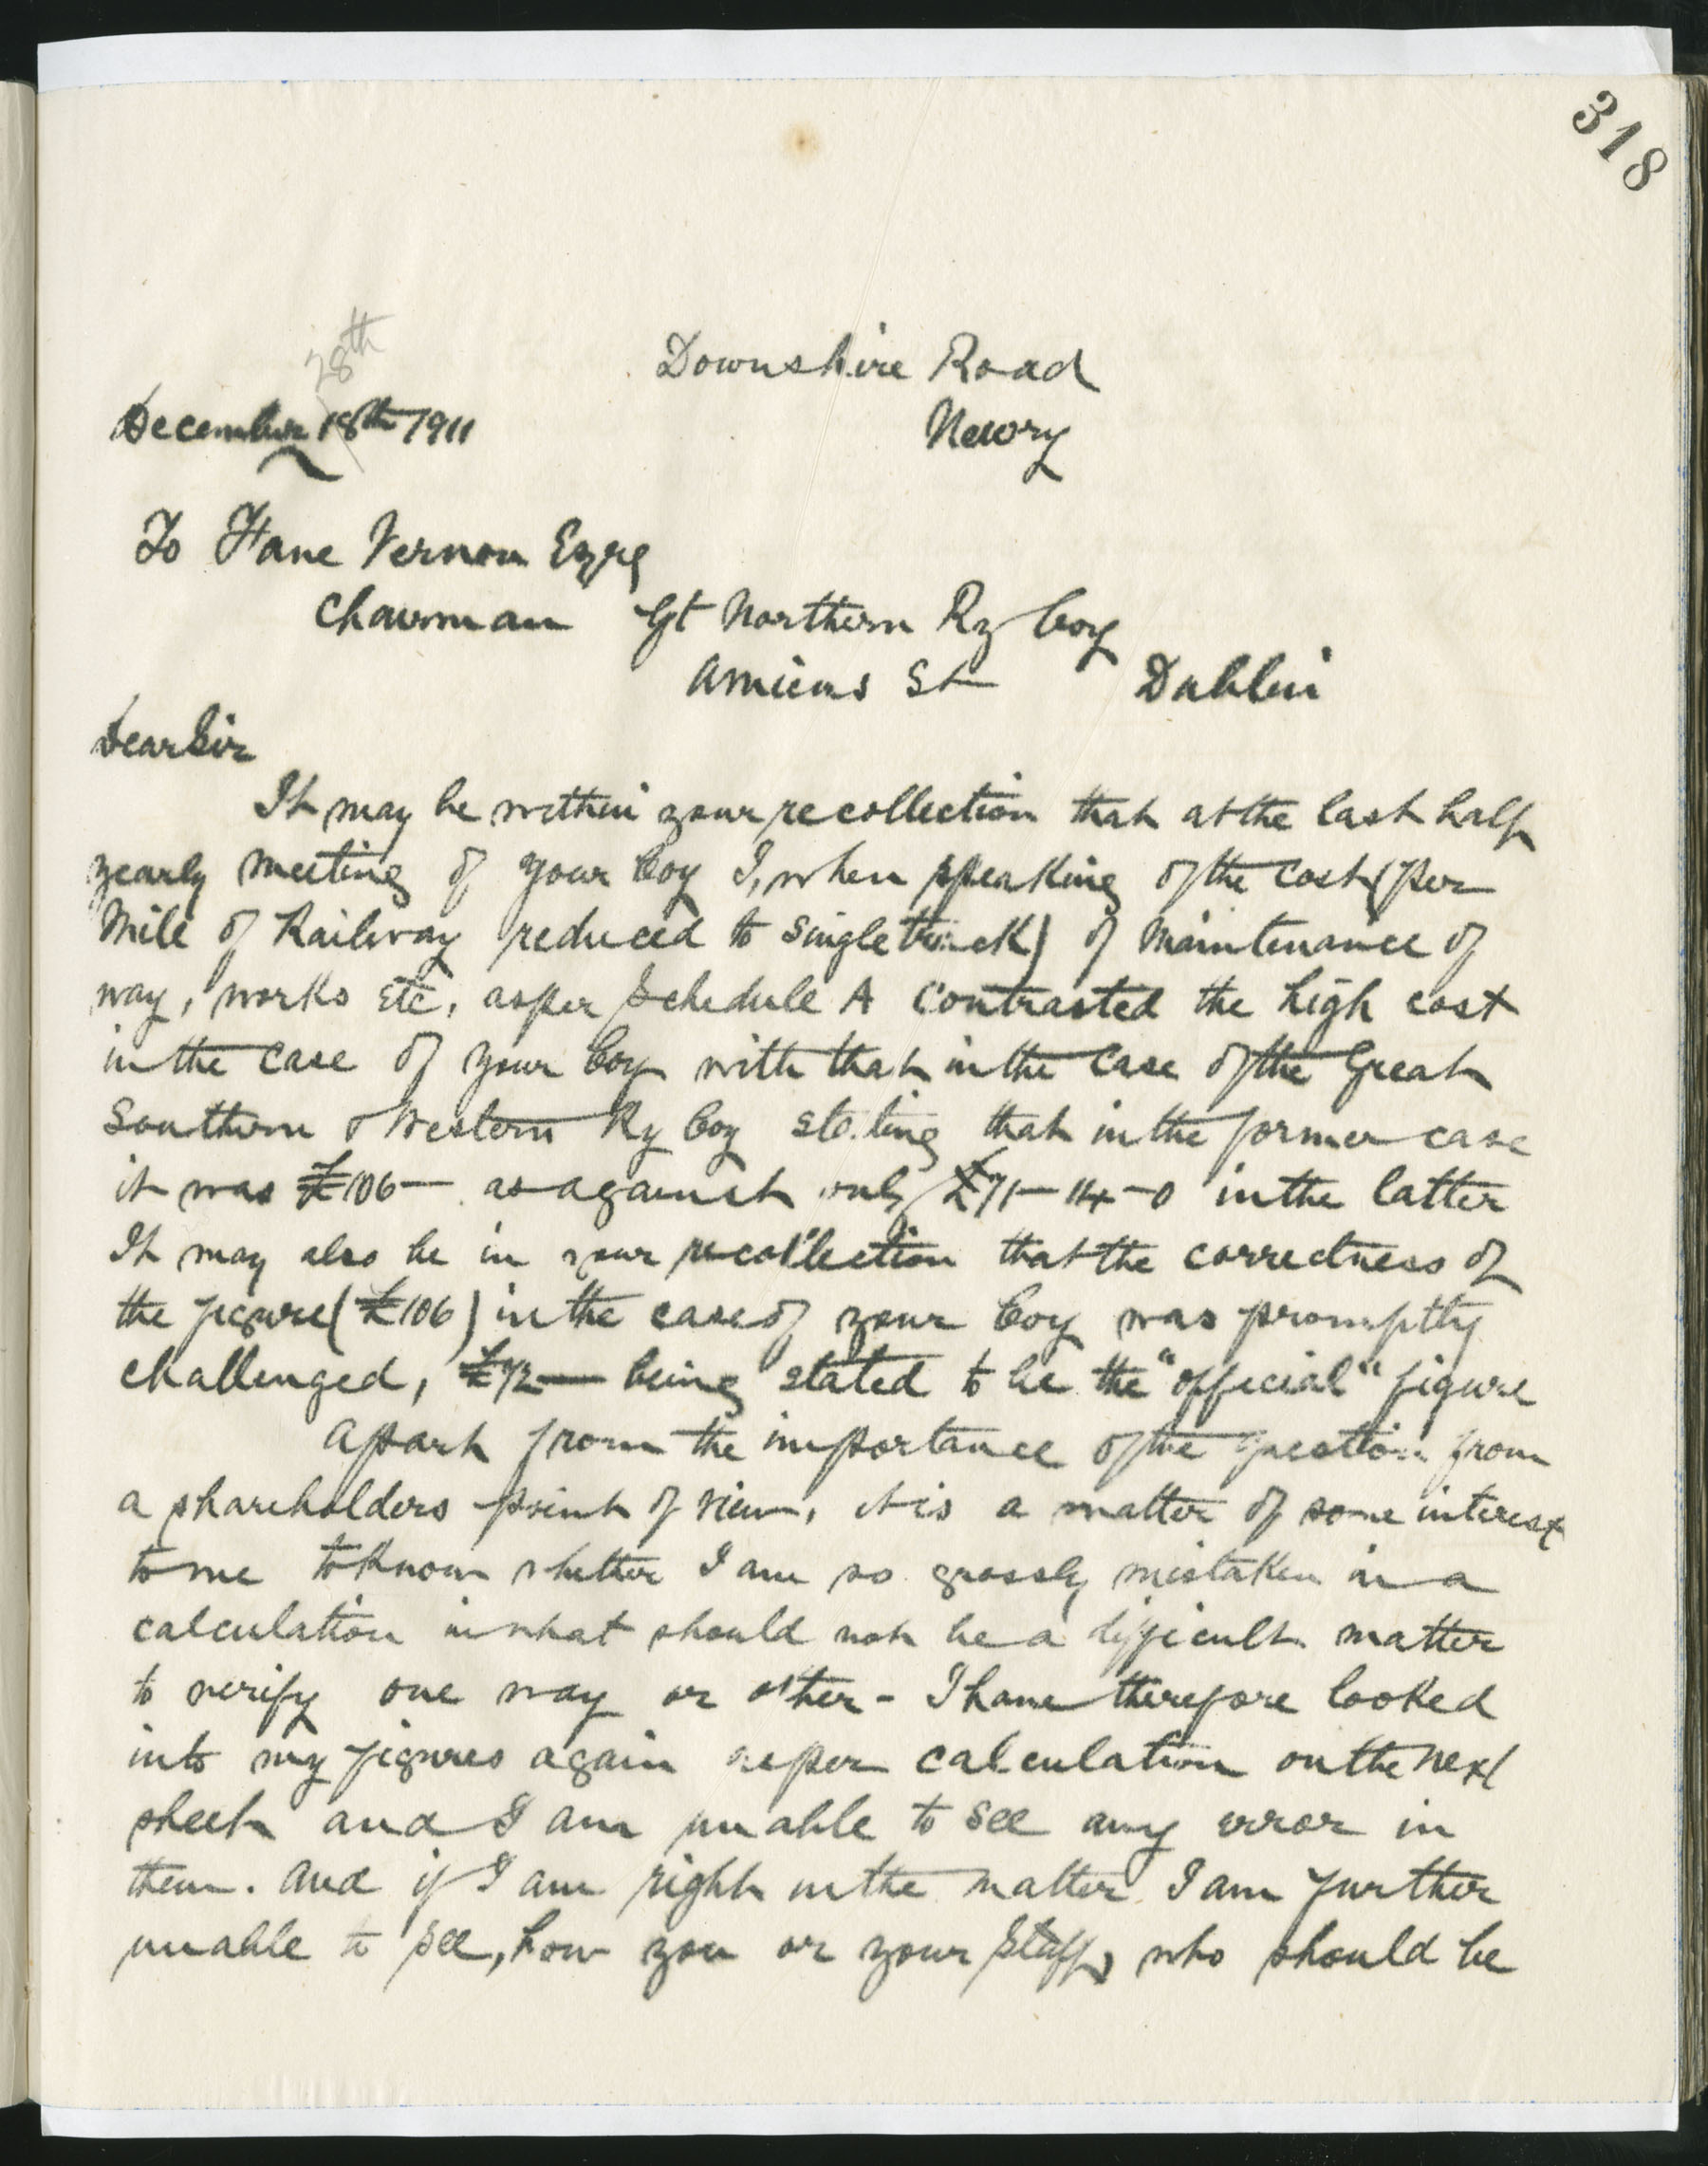 318
28th
Downshire Road
December 18th 1911
Newry
To Fane Vernon Esqre
Chairman Gt Northern Ry Coy
Amiens St Dublin
Dear Sir
It may be within your recollection that at the last half
yearly meeting of your Coy I, when speaking of the cost (per
Mile of Railway reduced to single track) of Maintenance of
way, works etc, as per Schedule A contrasted the high cost
in the case of your Coy with that in the case of the Great
Southern & Western Ry Coy stating that in the former case
it was £106 — as against only £71-14-0 in the latter
It may also be in your recollection that the correctness of
the figure (£106) in the case of your Coy was promptly
challenged, £72 — being stated to be the "official" figure
Apart from the importance of the question from
a shareholders point of view, it is a matter of some interest
to me to know whether I am so grossly mistaken in a
calculation in what should not be a difficult matter
to verify one way or other - I have therefore looked
into my figures again as per calculation on the next
sheet and I am unable to see any error in
them. And if I am right in the matter I am further
unable to see, how you or your Staff, who should be